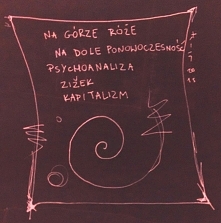 NA GÓRZE RÓŻE
NA DOLE PONOWOCZESNOŚĆ
PSYCHOANALIZA
ZIŻEK
KAPITALIZM